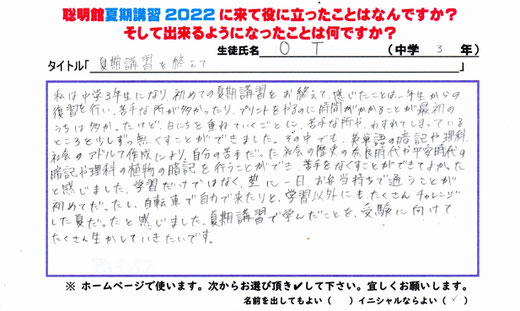 聡明館夏期講習2022に来て役に立ったことはなんですか?
そして出来るようになったことは何ですか?
生徒氏名 O T (中学 3 年)
タイトル「夏期講習を終えて」
私は中学3年生になり初めての夏期講習をお終えて、感じたことは、1年生からの
復習を行い、苦手な所が多かったり、プリントをやるのに時間がかかることが最初の
うちは多かったけど、日にちを重ねていくごとに、苦手な所や、わすれてしまっている
ところを少しずつ無くすことができました。その中でも、英単語の暗記や理科、
社会のアドルフ作成により、自分の苦手だった社会の歴史の奈良時代や平安時代の
暗記や理科の植物の暗記を行うことができ、苦手をなくすことができてよかった
と感じました。学習だけではなく、塾に一日お弁当持ちで通うことが
初めてだったし、自転車で自力で来たりと、学習以外にもたくさんチャレンジ
した夏だったと感じました。夏期講習で学んだことを、受験に向けて
たくさん生かしていきたいです。
※ ホームページで使います。次からお選び頂き✔して下さい。宜しくお願いします。
名前を出してもよい( ) イニシャルならよい(✓)